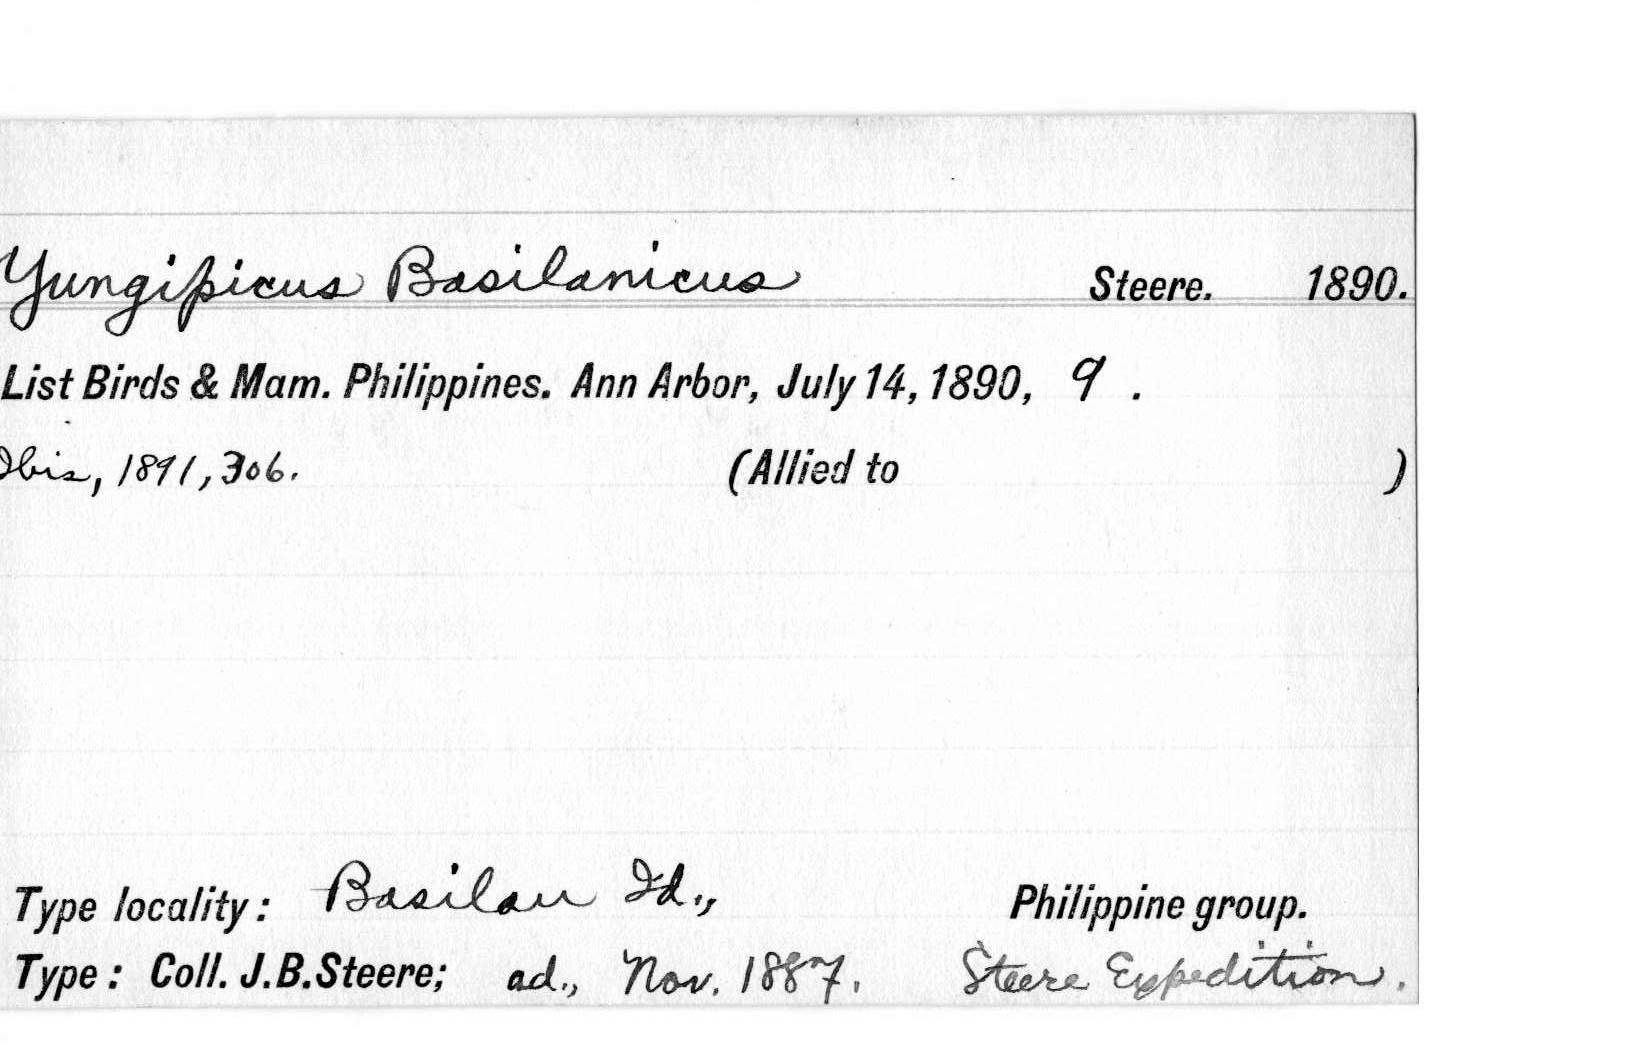 Yungipicus Basilanicus Steere. 1890.
List Birds & Mam. Philippines. Ann Arbor, July 14, 1890, 9 .
Ibis, 1891, 306. (Allied to )
Type locality: Basilan Id., Philippine group.
Type: Coll. J.B.Steere; ad., Nov. 1887. Steere Expedition.